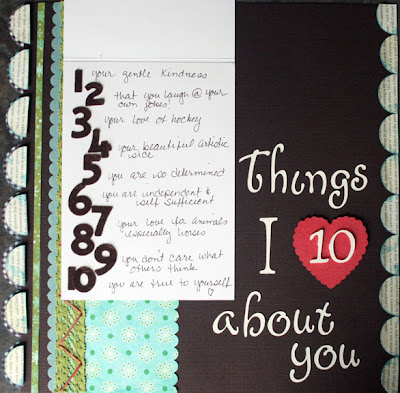 1 your gentle kindness
2 that you laugh @ your
own jokes!
3 your love of hockey
4 your beautiful artistic
side
5 you are so determined
6 you are independent &
self sufficient
7 your love for animals
especially horses
8
9 you don't care what
others think
10 you are true to yourself
Things
I 10
about
you